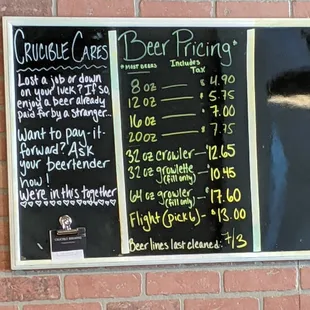 CRUCIBLE CARES
Lost a job or down
on your luck? If so,
enjoy a beer already
paid for by a stranger...
Want to pay-it-
forward? Ask
your beertender
how!
We're in this together
Beer Pricing*
*MOST BEERS Includes Tax
8 oz — $4.90
12 oz — $5.75
16 oz — $7.00
20 oz — $7.75
32 oz crowler — $12.65
32 oz growlette (fill only) — 10.45
64 oz growler (fill only) — $17.60
Flight (pick 6) - $13.00
Beer lines last cleaned: 7/3